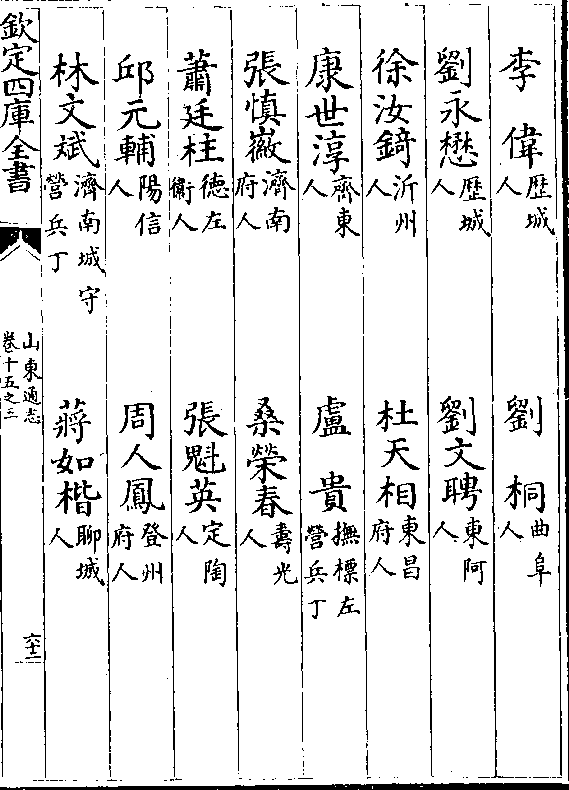 李偉歴城人 劉桐曲阜人
劉永懋歴城人 劉文聘東阿人
徐汝錡沂州人 杜天相東昌府人
康世淳齊東人 盧貴撫標左營兵丁
張慎徽濟南府人 桑榮春壽光人
蕭廷柱德左衛人 張魁英定陶人
邱元輔陽信人 周人鳳登州府人
林文斌濟南城守營兵丁 蔣如楷聊城人
欽定四庫全書 山東通志卷十五之三 六十二